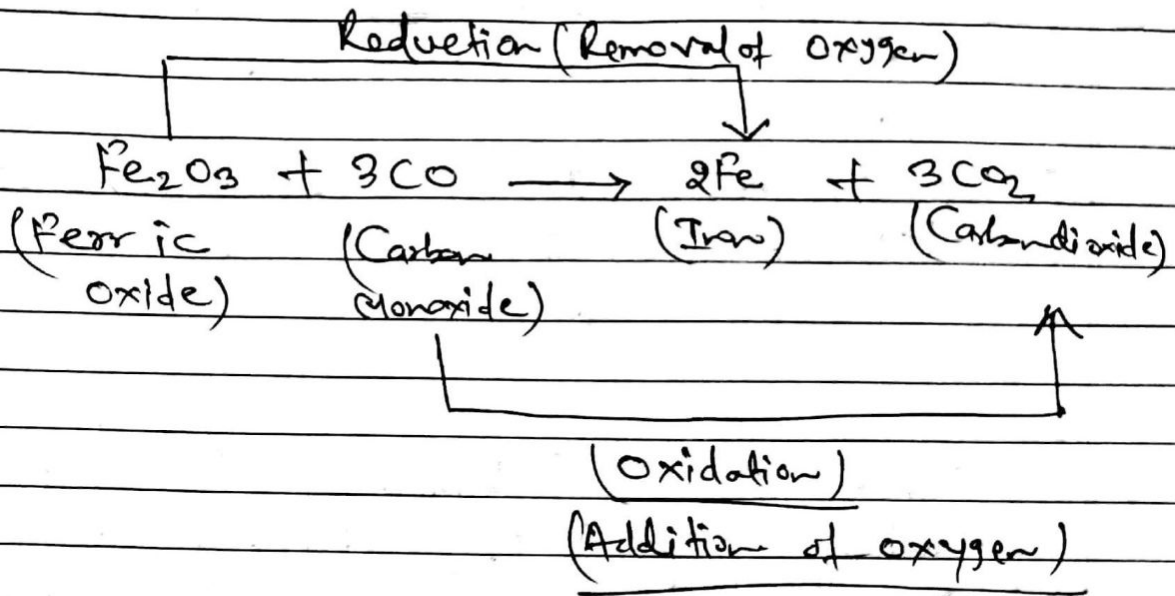 Reduction (Removal of Oxygen)
Fe₂O₃ + 3CO ⟶ 2Fe + 3CO₂
(Ferric (Carbon (Iron) (Carbondioxide)
oxide) Monoxide)
(Oxidation)
(Addition of oxygen)